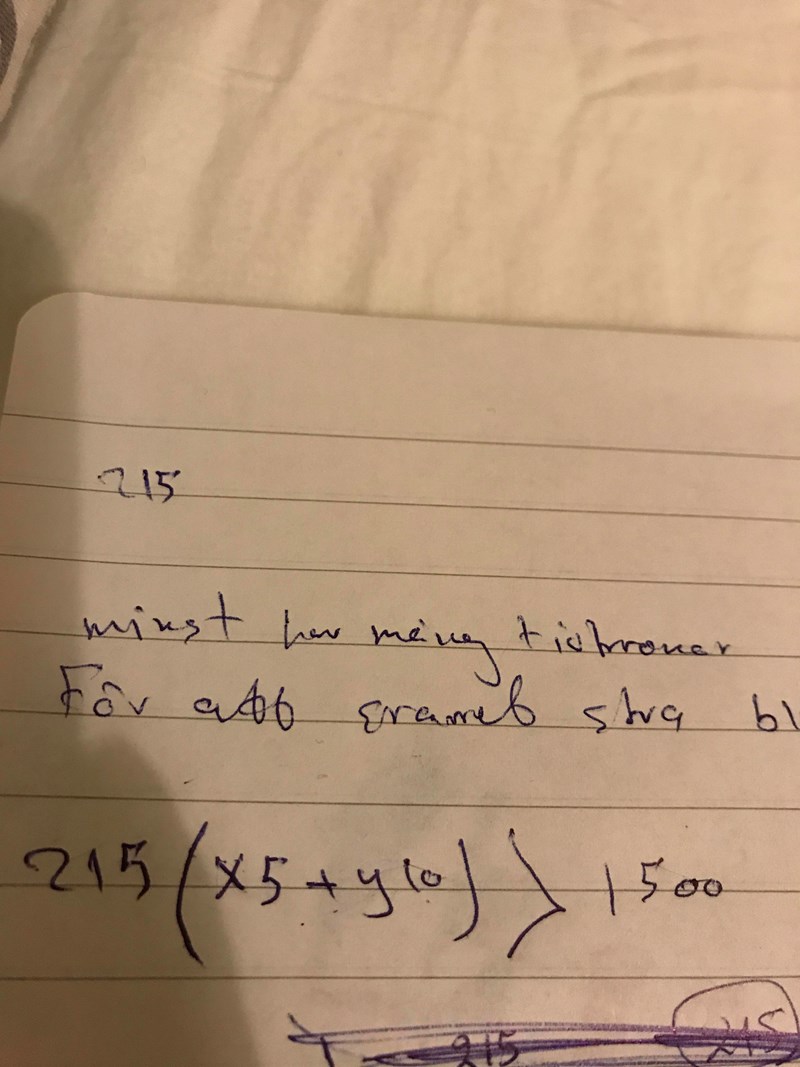 215
minst hur många tiokronor
För att gramet ska bl
215 (x5 + y10) > 1500
215 245